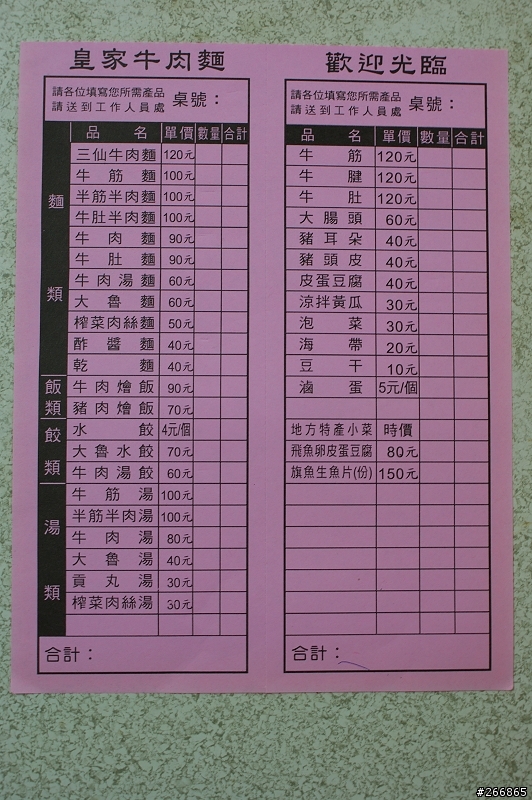 皇家牛肉麵
請各位填寫您所需產品
請送到工作人員處
桌號：
品名 單價 數量 合計
麵類
三仙牛肉麵 120元
牛筋麵 100元
半筋半肉麵 100元
牛肚半肉麵 100元
牛肉麵 90元
牛肚麵 90元
牛肉湯麵 60元
大魯麵 60元
榨菜肉絲麵 50元
酢醬麵 40元
乾麵 40元
飯類
牛肉燴飯 90元
豬肉燴飯 70元
餃類
水餃 4元/個
大魯水餃 70元
牛肉湯餃 60元
湯類
牛筋湯 100元
半筋半肉湯 100元
牛肉湯 80元
大魯湯 40元
貢丸湯 30元
榨菜肉絲湯 30元
合計：
歡迎光臨
請各位填寫您所需產品
請送到工作人員處
桌號：
品名 單價 數量 合計
牛筋 120元
牛腱 120元
牛肚 120元
大腸頭 60元
豬耳朵 40元
豬頭皮 40元
皮蛋豆腐 40元
涼拌黃瓜 30元
泡菜 30元
海帶 20元
豆干 10元
滷蛋 5元/個
地方特產小菜 時價
飛魚卵皮蛋豆腐 80元
旗魚生魚片(份) 150元
合計：
#266865